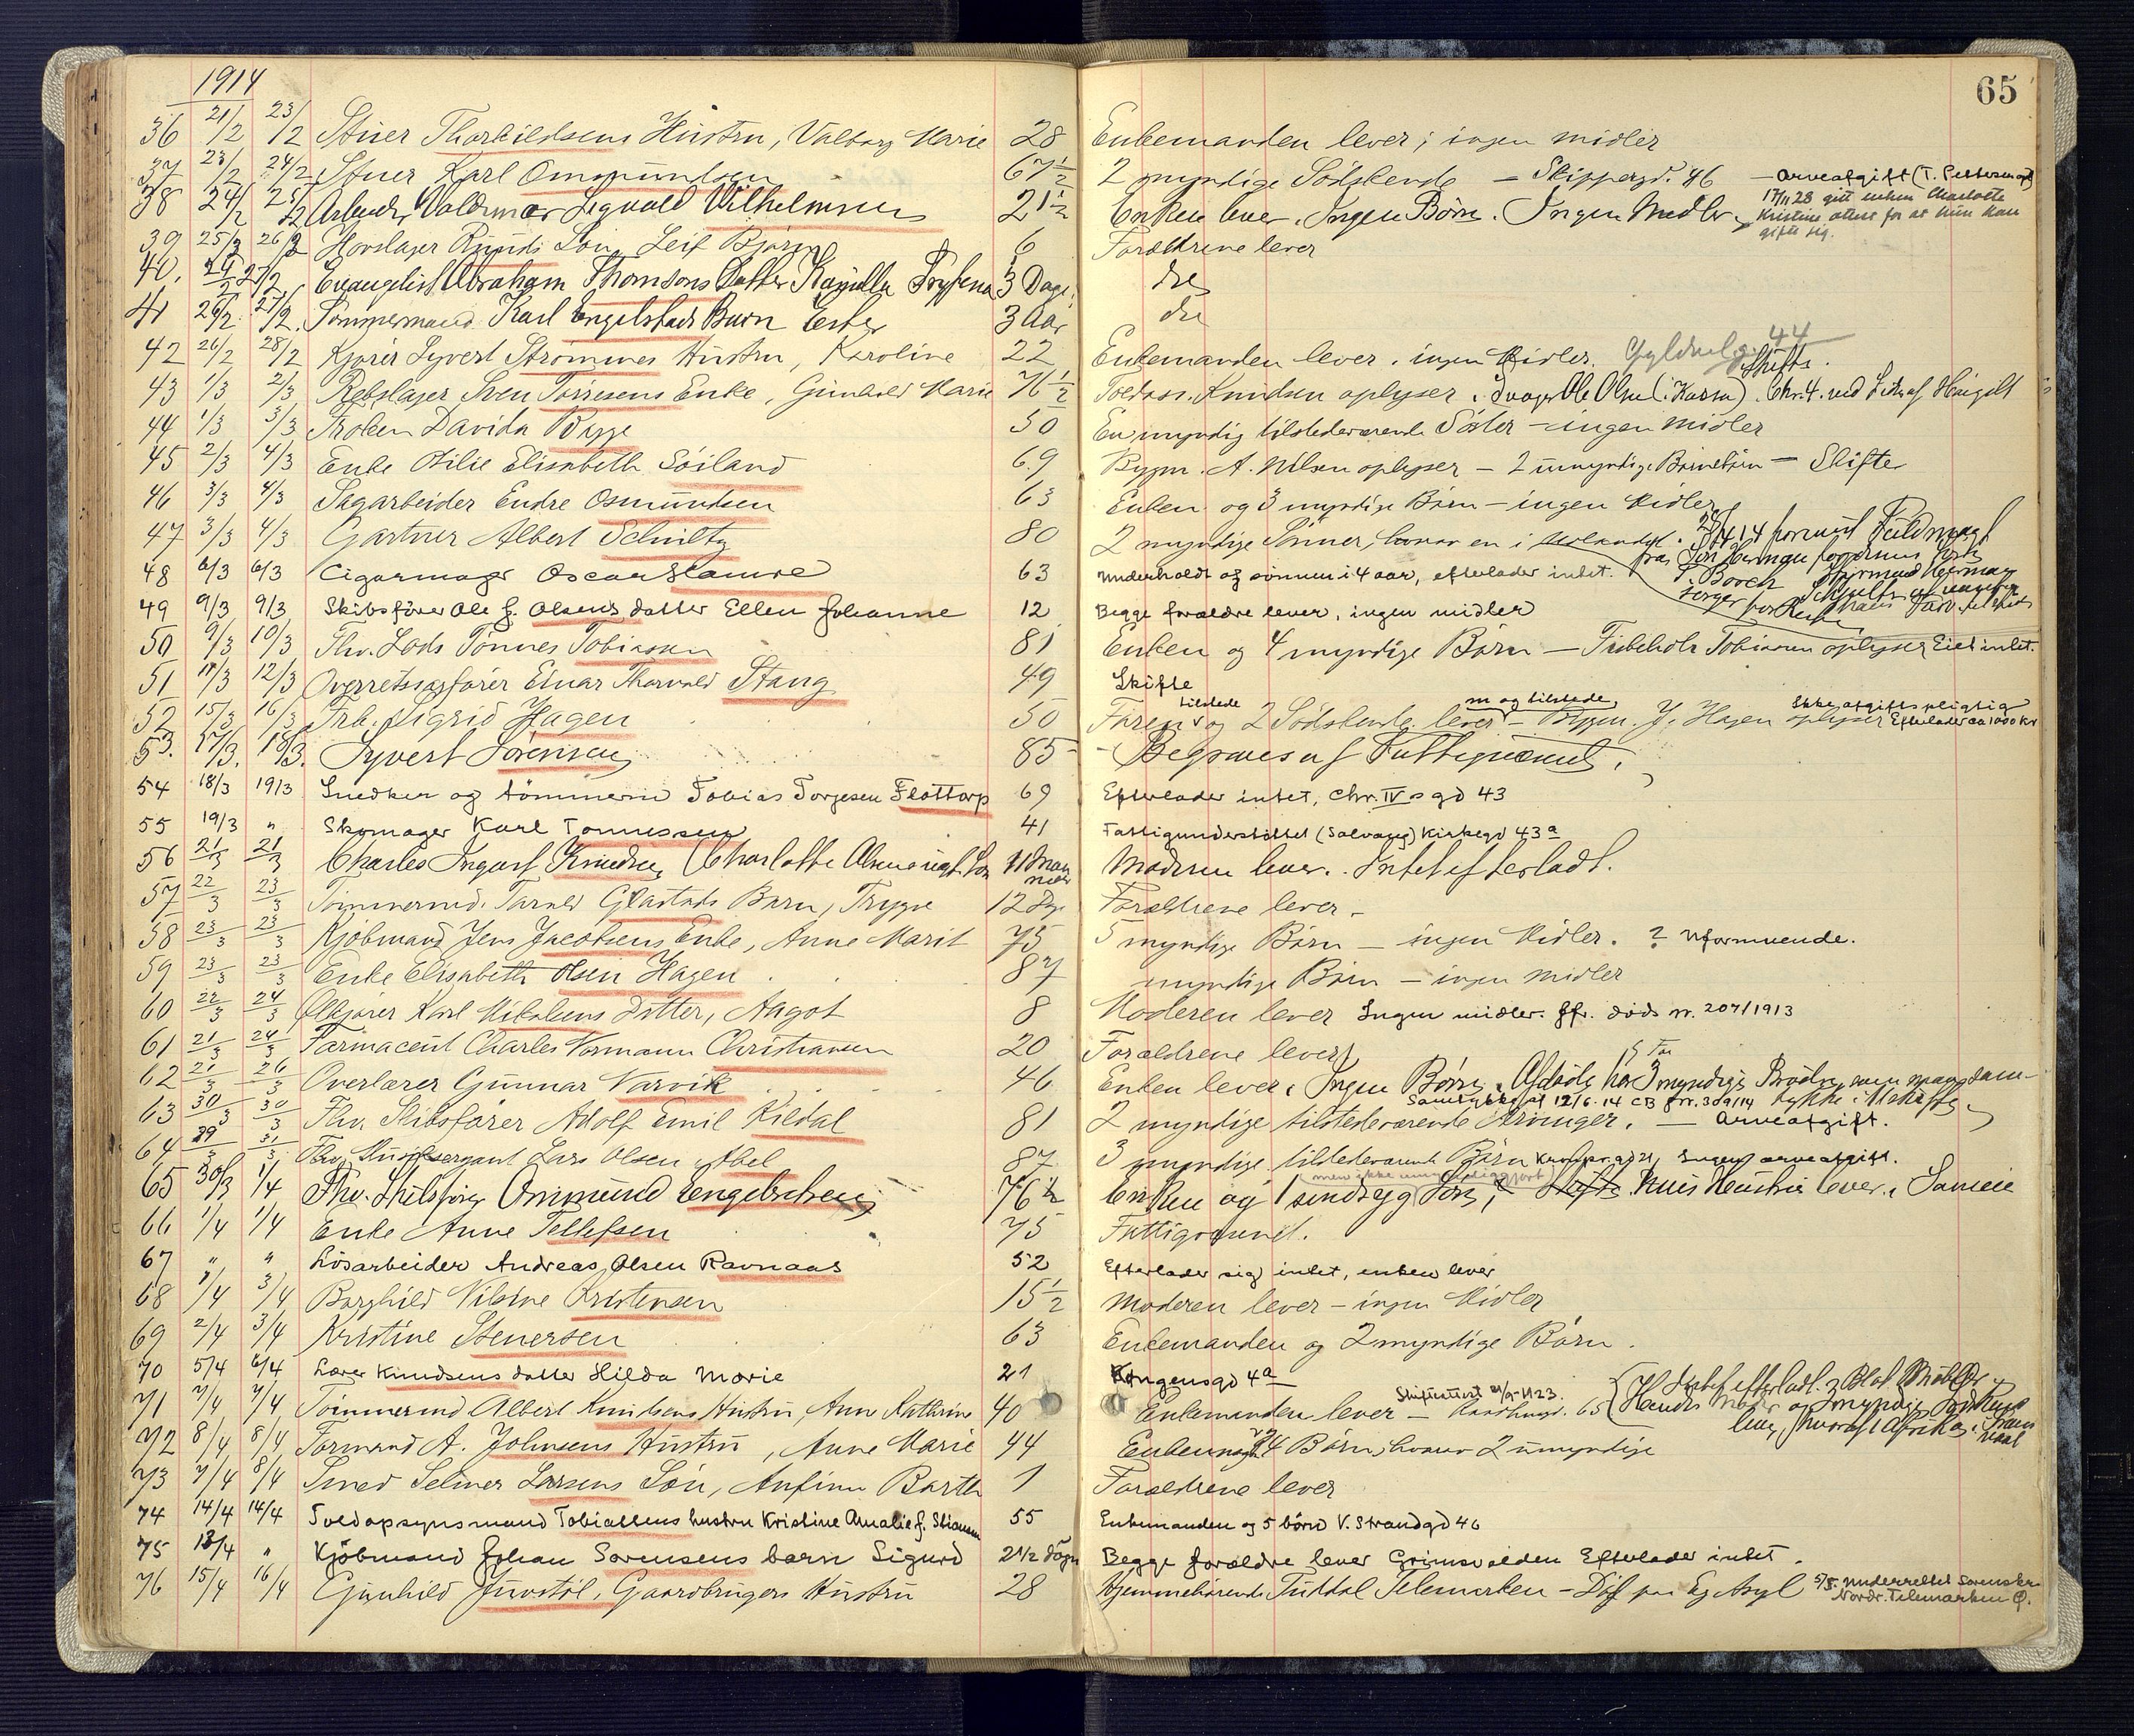 1914
65
36 21/2 23/2 Stuer Thorkildsens Hustru, Valborg Marie 28 Enkemanden lever; ingen midler
37 23/2 24/2 Stuer Karl Ommundsen 67½ 2 myndige Södskende – Skippergd. 46 – Arveafgift
38 24/2 25/2 Arbeider Valdemar Sigvald Vilhelmsen 21½ Enken lever. Ingen Børn. Ingen Midler. 17/11 28 gitt enken Charlotte
Kristine attest for at hun kan
gifte sig.
39 25/2 26/2 Hovslager Rynnds Søn Leif Bjørn 6 Forældrene lever
40. 25/2 27/2 Evangelist Abraham Thomsons Datter Kamilla 3 Dage. do
41 26/2 27/2. Tømmermand Karl Engelstads Barn Ester 3 Aar do
42 26/2 28/2 Kjører Syvert Strømmes Hustru, Karoline 22 Enkemanden lever. ingen Midler. Gyldenl.g. 44
43 1/3 2/3 Rebslager Sven Torresens Enke, Gunhild Marie 76½ Toldass. Knudsen oplyser. Svoger Ole Olsen Skifte.
44 1/3 3/3 Frøken Davida Bugge 50 En myndig tilstedeværende Søster – ingen midler
45 2/3 4/3 Enke Otilie Elisabeth Söiland 69 Bygm. A. Nilsen oplyser – 2 umyndige Børnebørn – Skifte
46 3/3 4/3 Sagarbeider Endre Osmundsen 63 Enken og 3 myndige Børn – ingen Midler
47 3/3 4/3 Gartner Albert Schultz 80 2 myndige Sønner, hvorav en i Udlandet.
48 6/3 6/3 Cigarmager Oscar Hamre 63 Underholdt af sønnen i 4 aar, efterlader intet.
49 9/3 9/3 Skibsfører Ole J. Olsens datter Ellen Johanne 12 Begge forældre lever, ingen midler
50 9/3 10/3 Fhv. Lods Tönnes Tobiassen 81 Enken og 4 myndige Børn – Tobiassen oplyser Eiet intet.
51 11/3 12/3 Overretssagfører Einar Thorvald Stang 49 Skifte
52 15/3 16/3 Frk. Sigrid Hagen 50 Faren tilstede og 2 Södskende lever m og tilstede – Bygm. J. Hagen oplyser Ikke afgiftspligtig Efterlader ca 1000 kr
53. 17/3. 18/3. Syvert Sörensen 85 – Begraves af Fattigvæsenet.
54 18/3 19/3 Snedker og tömmerm Tobias Torgesen Flottorp 69 Efterlader intet, Chr. IV s gd 43
55 19/3 " Skomager Karl Tönnessen 41 Fattigunderstöttet (Salvager) Kirkegd 43a
56 21/3 21/3 Charles Ingolf Knudsen, (Charlotte 11 Maaneder Moderen lever. Intet efterladt.
57 22/3 23/3 Tømmermd. Tarald Glastads Barn, Trygve 12 Dge Forældrene lever.
58 23/3 23/3 Kjøbmand Jens Jacobsens Enke, Anne Marit 75 5 myndige Børn – ingen Midler. ? Uformuende.
59 23/3 23/3 Enke Elisabeth Olsen Hagen 87 myndige Børn – ingen midler
60 22/3 24/3 Ølkjører Karl Mikalsens Datter, Aagot 8 Moderen lever Ingen midler. Jfr. döds nr. 207/1913
61 21/3 24/3 Farmaceut Charles Normann Christiansen 20 Forældrene lever
62 21/3 26/3 Overlærer Gunnar Narvik 46 Enken lever. Ingen Børn. Afdøde har 3 myndige Brødre
Samtykke af 12/6.14 CB Jnr. 309/14
63 30/3 30/3 Fhv. Skibsfører Adolf Emil Kildal 81 2 myndige tilstedeværende Arvinger. – Arveafgift.
64 29/3 31/3 Fhv. Lars Olsen Abel 87 3 myndige tilstedeværende Børn Kronprgd 21, Ingen arveafgift.
65 30/3 1/4 Fhv. Skibsfører Ommund Engebretsen 76½ Enken og 1 sindssyg Søn, men ikke umyndiggjort. Skifte. Hans Hustru lever. Sameie
66 1/4 1/4 Enke Anne Tellefsen 75 Fattigvæsenet.
67 " " Lösarbeider Andreas Olsen Ravnaas 52 Efterlader sig intet, enken lever
68 1/4 3/4 Borghild Vilsine Kristensen 15½ Moderen lever – ingen Midler
69 2/4 3/4 Kristine Stenersen 63 Enkemanden og 2 myndige Børn.
70 5/4 6/4 Lærer Knudsens datter Hilda Marie 21 Kongensgd 4a
71 7/4 7/4 Tømmermd Albert Knudsens Hustru, Ane Kathrine 40 Enkemanden lever – Skifteattest 21/9-1923.
72 8/4 8/4 Formand A. Johnsens Hustru, Anne Marie 44 Enkemand 4 Børn, hvorav 2 umyndige
73 7/4 8/4 Smed Selmer Larsens Søn, Anfinn Barth 1 Forældrene lever
74 14/4 14/4 Toldopsynsmand Tobiassens hustru Kristine Amalie f. 55 Enkemanden og 5 börn V. Strandgd 46
75 13/4 " Kjöbmand Johan Sørensens barn Sigurd 2½ dögn Begge forældre lever Grimsveien Efterlader intet.
76 15/4 16/4 Gunhild Juvstøl, Gaardbrugers Hustru 28 Hjemmehørende Tuddal Telemarken – Død paa Eg Asyl 5/5. Underrettet Sorenskr.
Nordr. Telemarken